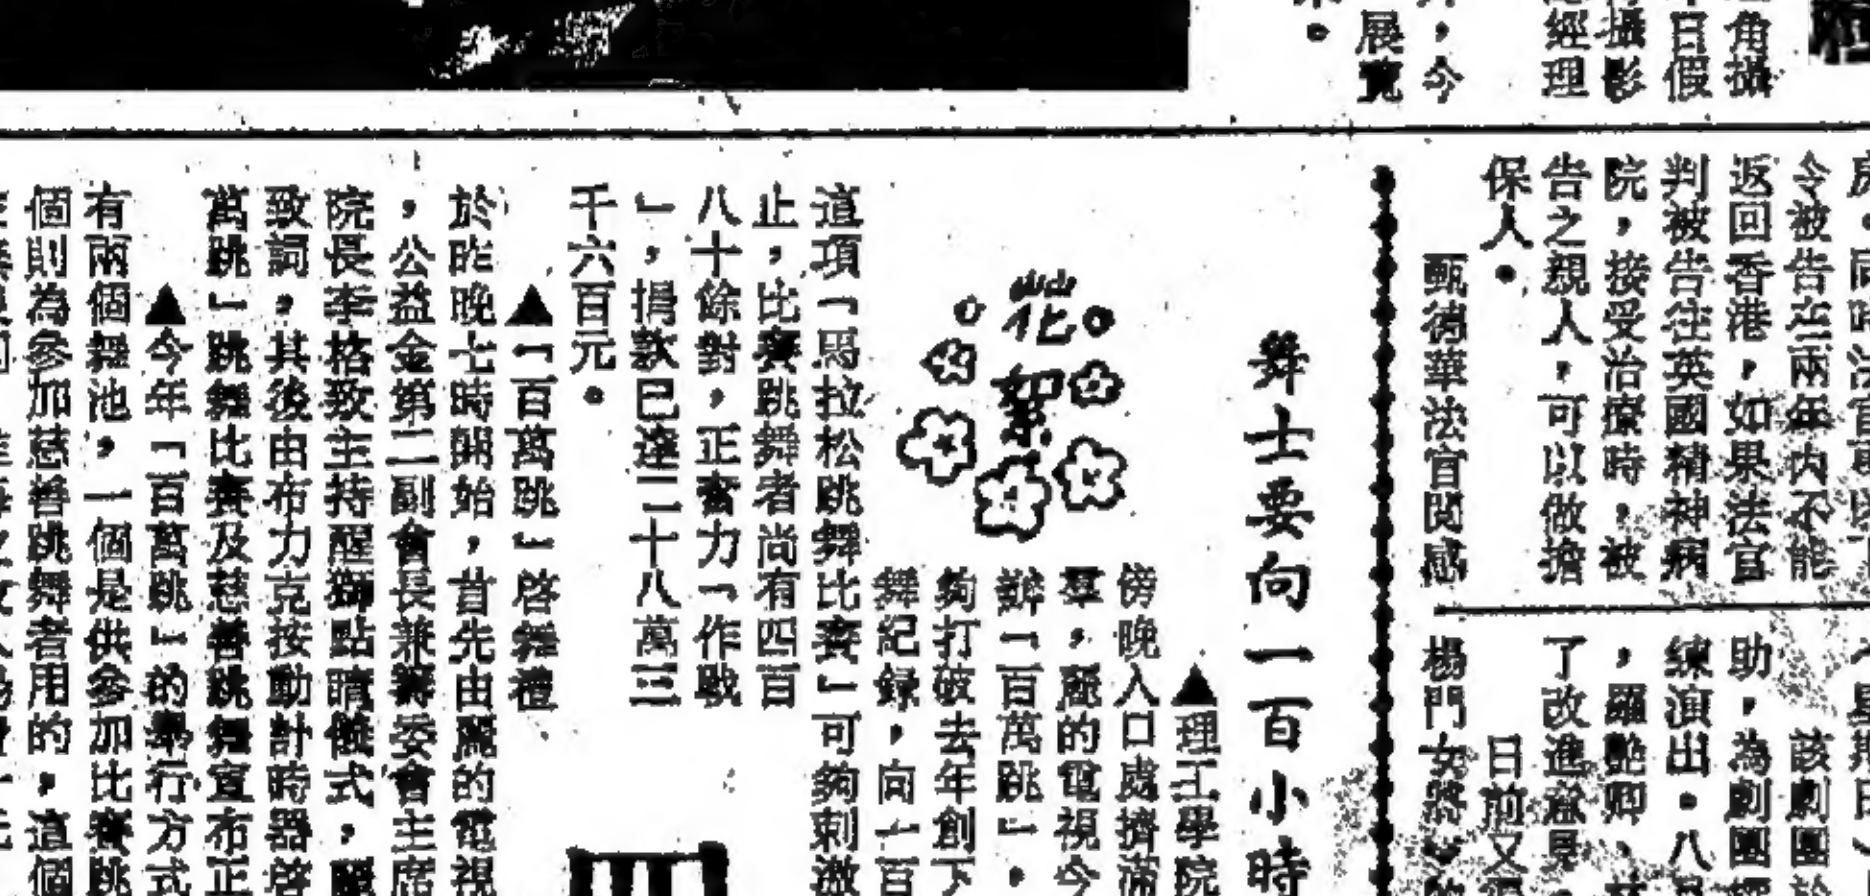 角攝
日假
攝影
經理
，今
展覽
令被告在兩年內不能
返回香港，如果法官
判被告往英國精神病
院，接受治療時，被
告之親人，可以做擔
保人。
甄德華法官閱感
該劇團
助，為劇團
練演出。八
，羅艷卿、
了改進意見
日前又
楊門女將
舞士要向一百小時
花絮
▲理工學院
傍晚入口處擠滿
羣，麗的電視今
辦「百萬跳」，
夠打破去年創下
舞紀録，向一百
這項「馬拉松跳舞比賽」可夠刺激
止，比賽跳舞者尚有四百
八十餘對，正奮力「作戰
」，捐款已達二十八萬三
千六百元。
▲「百萬跳」啓舞禮
於昨晚七時開始，首先由麗的電視
，公益金第二副會長兼籌委會主席
院長李格致主持醒獅點睛儀式，
致詞，其後由布力克按動計時器啓
萬跳」跳舞比賽及慈善跳舞宣布正
▲今年「百萬跳」的舉行方式
有兩個舞池，一個是供參加比賽跳
個則為參加慈善跳舞者用的，這個